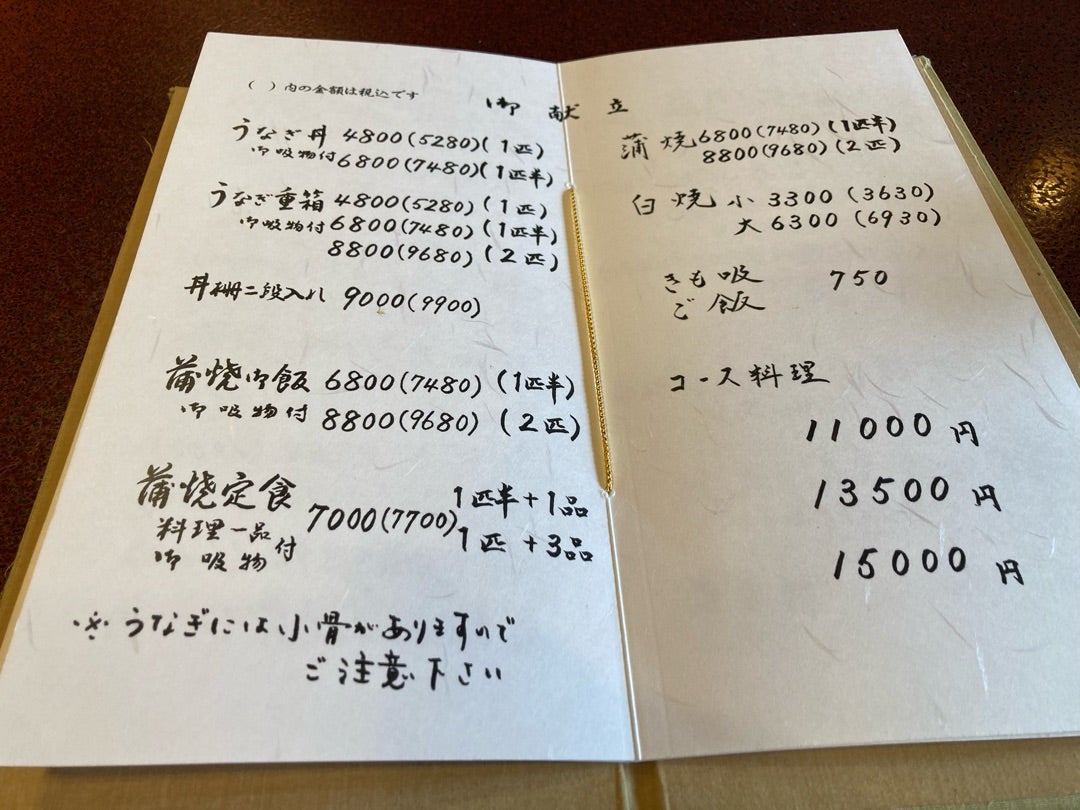 ( )内の金額は税込です
御献立
うなぎ丼 4800(5280)(1匹)
御吸物付 6800(7480)(1匹半)
うなぎ重箱 4800(5280)(1匹)
御吸物付 6800(7480)(1匹半)
8800(9680)(2匹)
丼柵二段入れ 9000(9900)
蒲焼御飯 6800(7480)(1匹半)
御吸物付 8800(9680)(2匹)
蒲焼定食 7000(7700) 1匹半+1品
料理一品付 1匹+3品
御吸物
※うなぎには小骨がありますので
ご注意下さい
蒲焼 6800(7480)(1匹半)
8800(9680)(2匹)
白焼 小 3300(3630)
大 6300(6930)
きも吸 750
ご飯
コース料理
11000円
13500円
15000円